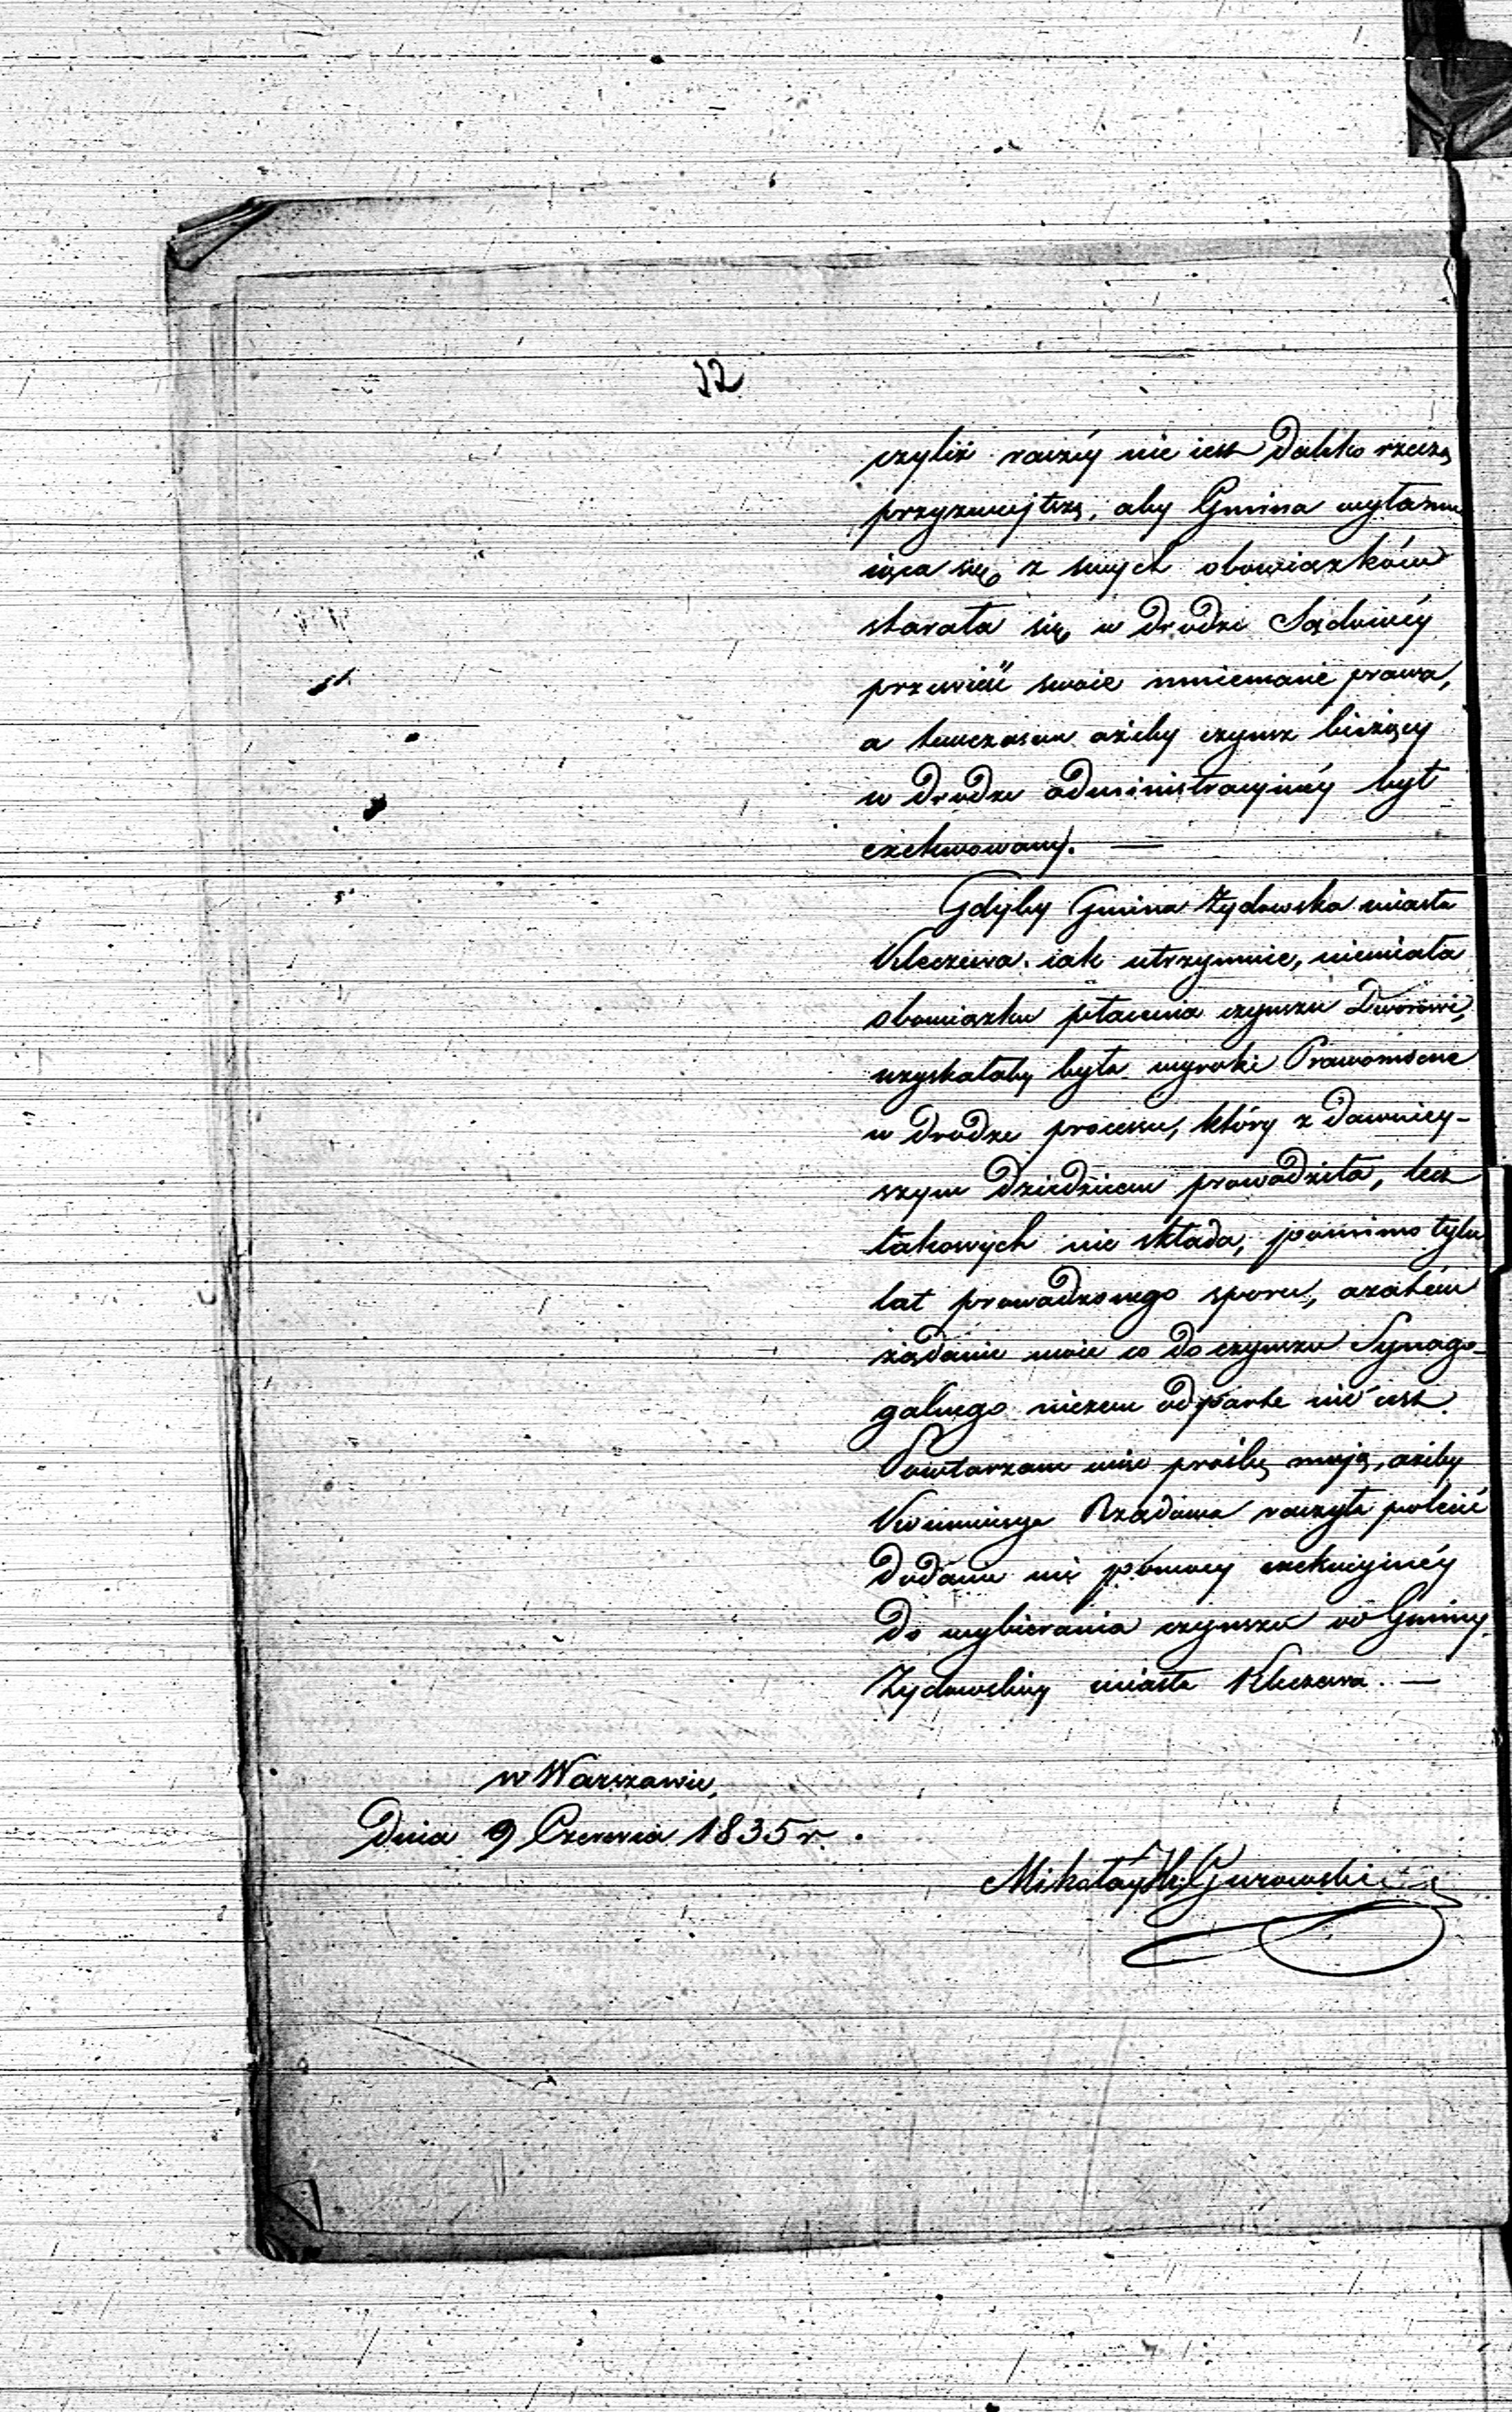 32
czyliż raczéy nie iest daleko rzeczą
przyzwoitszą, aby Gmina wyłamu
iąca się z swych obowiązków
starała się w drodze Sądowéy
przewieść swoie mniemane prawa,
a tymczasem ażeby czynsz bieżący
w drodze administracyinéy był
exekwowany. —
Gdyby Gmina Żydowska miasta
Kleczewa iak utrzymuie, niemiała
obowiązku płacenia czynszu Dworowi,
uzyskałaby była wyroki Prawomocne
w drodze processu, który z dawniey-
szym dziedzicem prowadziła, lecz
takowych nie składa, pomimo tylu
lat prowadzonego sporu, azatém
żądanie moie co do czynszu Synago-
galnego niczem odparte nie iest.
Powtarzam więc prośbę moją, ażeby
Kommissya Rządowa raczyła polecić
dodanie mi pomocy exekucyinéy
do wybierania czynszu od Gminy
Żydowskiey miasta Kleczewa. —
w Warszawie,
Dnia 9 Czerwca 1835 r.
Mikołay Hr. Gurowski